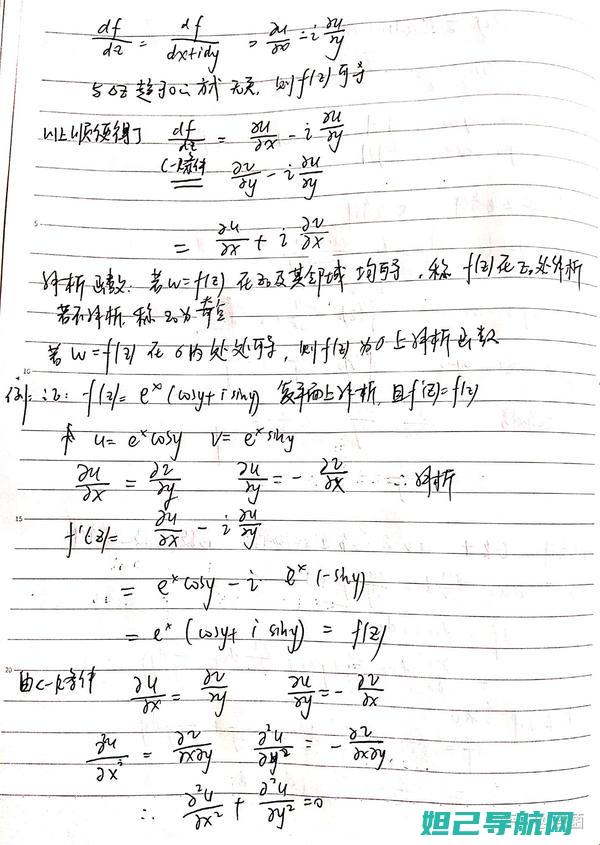 df/dz = df/(dx+idy) = ∂u/∂x - i ∂u/∂y
与Δz趋于0的方式无关, 则f(z)可导
以上顺便得了 df/dz = ∂u/∂x - i ∂u/∂y
C-R条件 ∂v/∂y - i ∂u/∂y
5
= ∂u/∂x + i ∂v/∂x
解析函数: 若w=f(z) 在z₀及其邻域均可导, 称f(z)在z₀处解析
若不解析, 称z₀为奇点
若 w=f(z) 在σ内处处可导, 则f(z)为σ上解析函数
10
例: 证: f(z)= eˣ(cosy+isiny) 复平面上解析, 且f'(z)=f(z)
u= eˣcosy v= eˣsiny
∂u/∂x = ∂v/∂y ∂u/∂y = - ∂v/∂x ∴解析
15
f'(z)= ∂u/∂x - i ∂u/∂y
= eˣcosy - i eˣ(-siny)
= eˣ(cosy+ i siny) = f(z)
20
由C-R条件 ∂u/∂x = ∂v/∂y ∂u/∂y = - ∂v/∂x
∂²u/∂x² = ∂v/∂x∂y ∂²u/∂y² = - ∂v/∂x∂y.
∴ ∂²u/∂x² + ∂²u/∂y² =0
妲己导航网